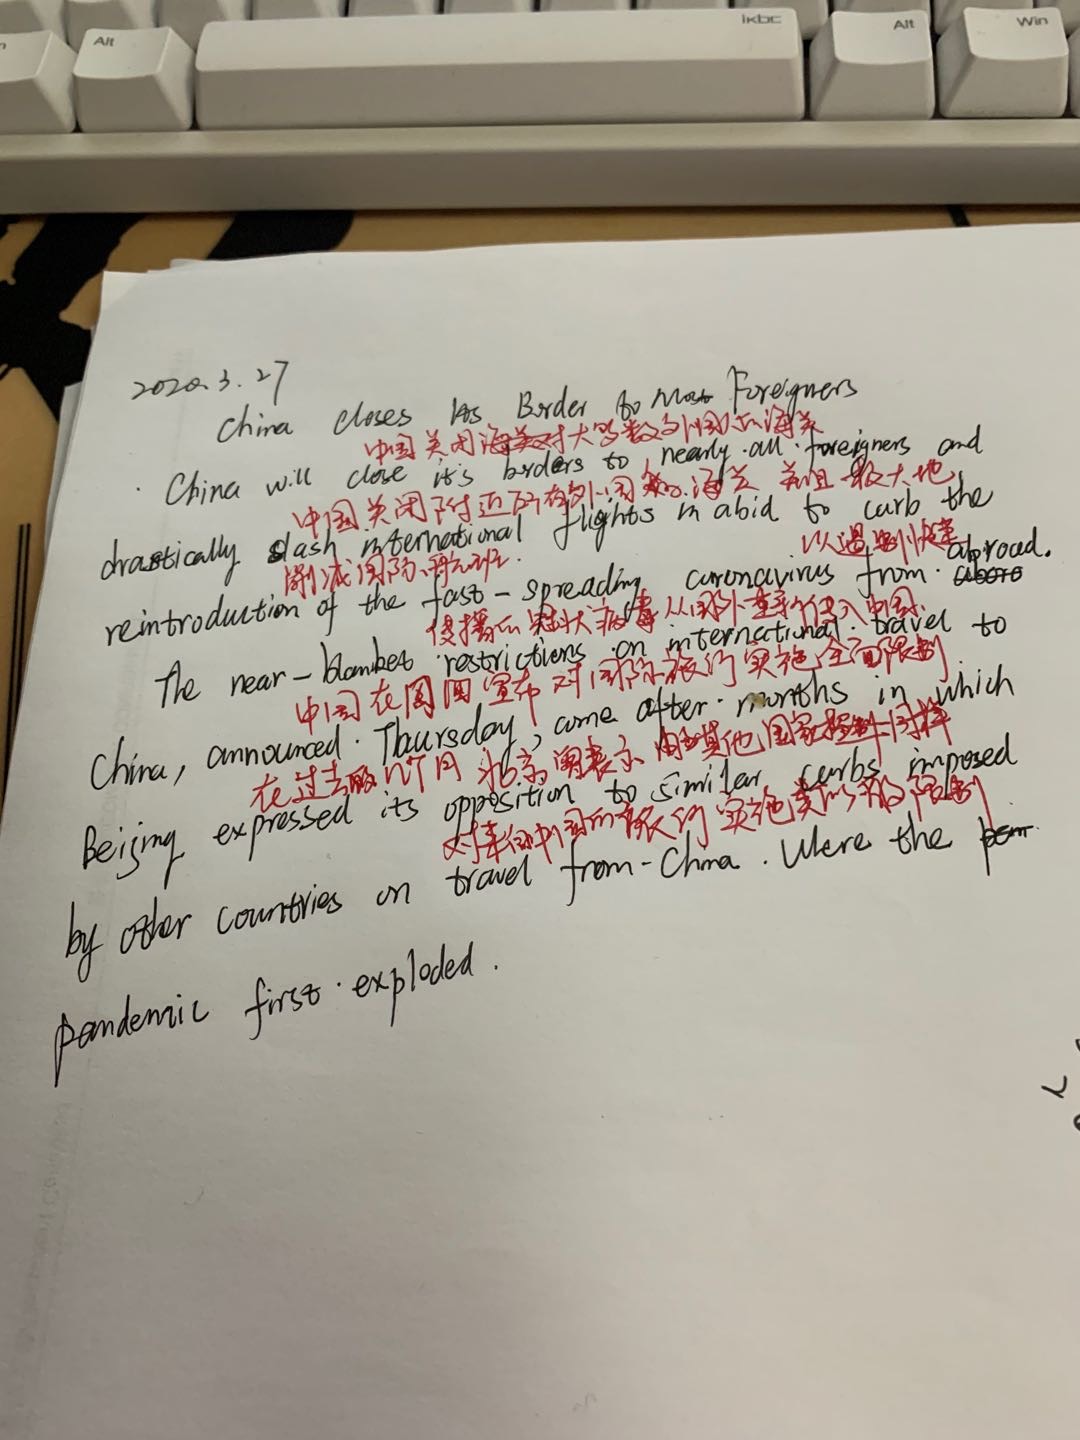 Alt
ikbc
Alt
Win
2020.3.27
China Closes Its Border to Most Foreigners
中国关闭海关对大多数外国人海关
China will close it's borders to nearly all foreigners and
中国关闭附近所有外国 海关 并且 极大地
drastically slash international flights in a bid to curb the
削减国际航班. 以遏制快速
reintroduction of the fast-spreading coronavirus from abroad.
传播的冠状病毒从国外重新传入中国.
The near-blanket restrictions on international travel to
中国在周四宣布对国际旅行实施全面限制
China, announced Thursday, come after months in which
在过去的几个月 北京 表示 其他国家 同样
Beijing expressed its opposition to similar curbs imposed
对来自中国的旅行实施类似的限制
by other countries on travel from China. Were the
pandemic first exploded.